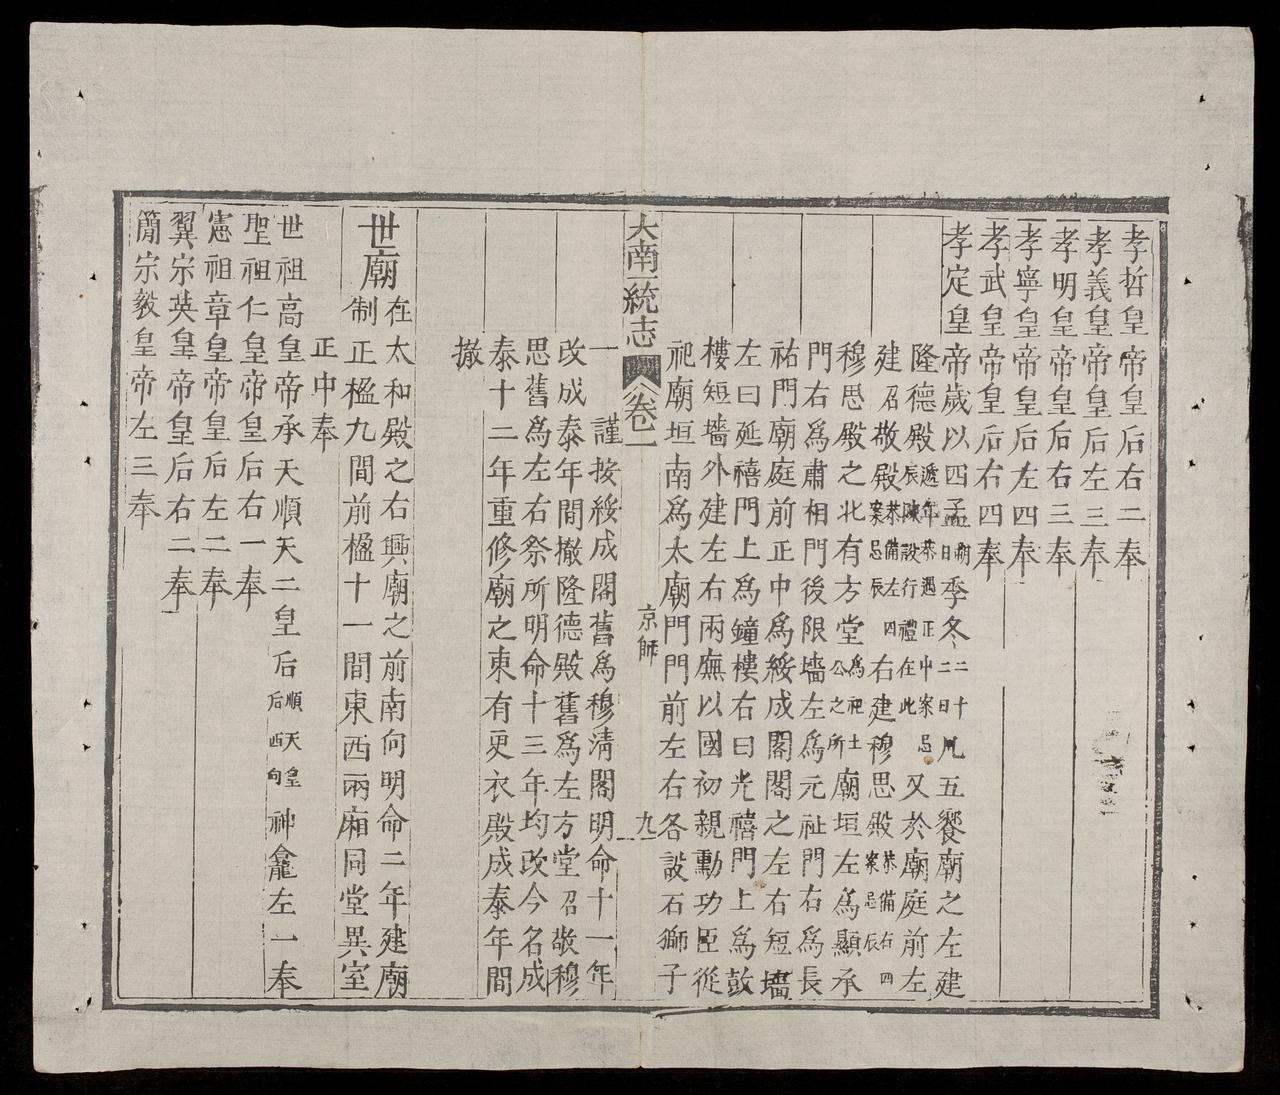 孝哲皇帝皇后右二奉
孝義皇帝皇后左三奉
孝明皇帝皇后右三奉
孝寧皇帝皇后左四奉
孝武皇帝皇后右四奉
孝定皇帝歲以四孟朔日季冬二十二日凡五饗廟之左建
隆德殿遞年恭遇正中案忌辰陳設行禮在此又於廟庭前左
建召敬殿恭備左四案忌辰右建穆思殿恭備右四案忌辰
穆思殿之北有方堂爲祀土公之所廟垣左爲顯承
門右爲肅相門後限墻左爲元祉門右爲長
祐門廟庭前正中爲綏成閣閣之左右短墻
左曰延禧門上爲鐘樓右曰光禧門上爲鼓
樓短墻外建左右兩廡以國初親勳功臣從
祀廟垣南爲太廟門門前左右各設石獅子
大南一統志 卷一 京師 九
一謹按綏成閣舊爲穆清閣明命十一年
改成泰年間撤隆德殿舊爲左方堂召敬穆
思舊爲左右祭所明命十三年均改今名成
泰十二年重修廟之東有更衣殿成泰年間
撤
世廟在太和殿之右興廟之前南向明命二年建廟
制正楹九間前楹十一間東西兩廂同堂異室
正中奉
世祖高皇帝承天順天二皇后順天皇后西向神龕左一奉
聖祖仁皇帝皇后右一奉
憲祖章皇帝皇后左二奉
翼宗英皇帝皇后右二奉
簡宗毅皇帝左三奉